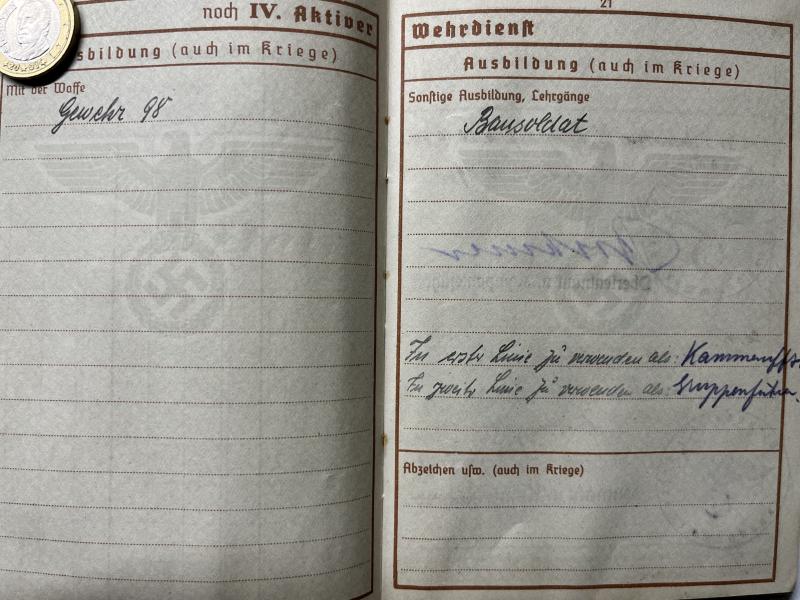 noch IV. Aktiver
sbildung (auch im Kriege)
Mit der Waffe
Gewehr 98
21
Wehrdienst
Ausbildung (auch im Kriege)
Sonstige Ausbildung, Lehrgänge
Bausoldat
In erster Linie zu verwenden als: Kammeruffz.
In zweiter Linie zu verwenden als: Gruppenführer.
Abzeichen usw. (auch im Kriege)